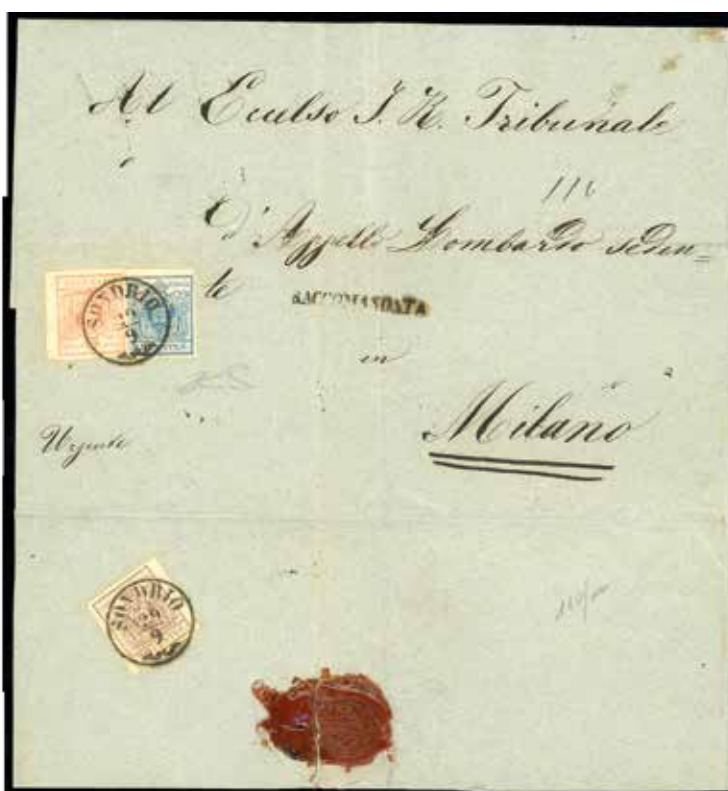 Al Eccelso I. R. Tribunale
116
d'Appello Lombardo seden=
te
RACCOMANDATA
SONDRIO
29
9
in
Milano
Urgente
SONDRIO
29
9